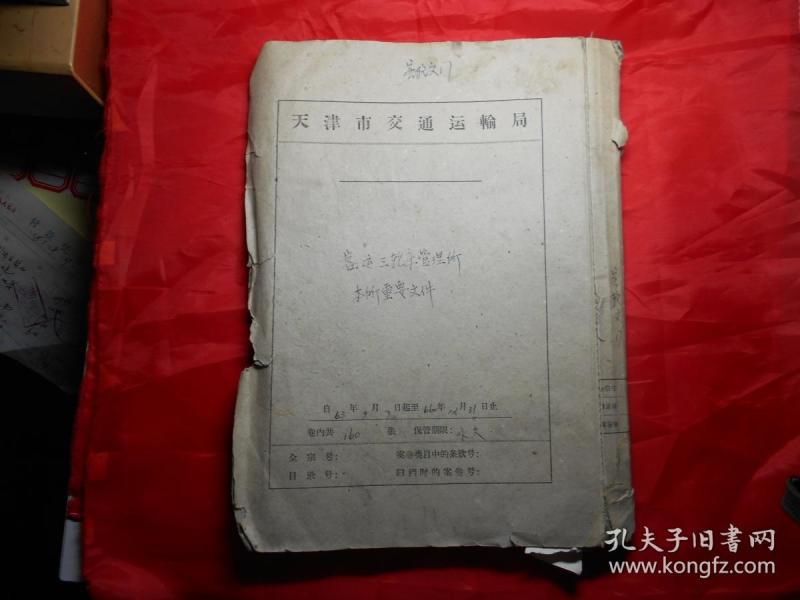 天津市交通运輸局
客运三轮车管理所
本所重要文件
自63年9月 日起至66年12月31日止
卷内共160張 保管期限:永久
全宗号: 案卷类目中的条款号:
目录号: 归档时的案卷号:
孔夫子旧书网
www.kongfz.com